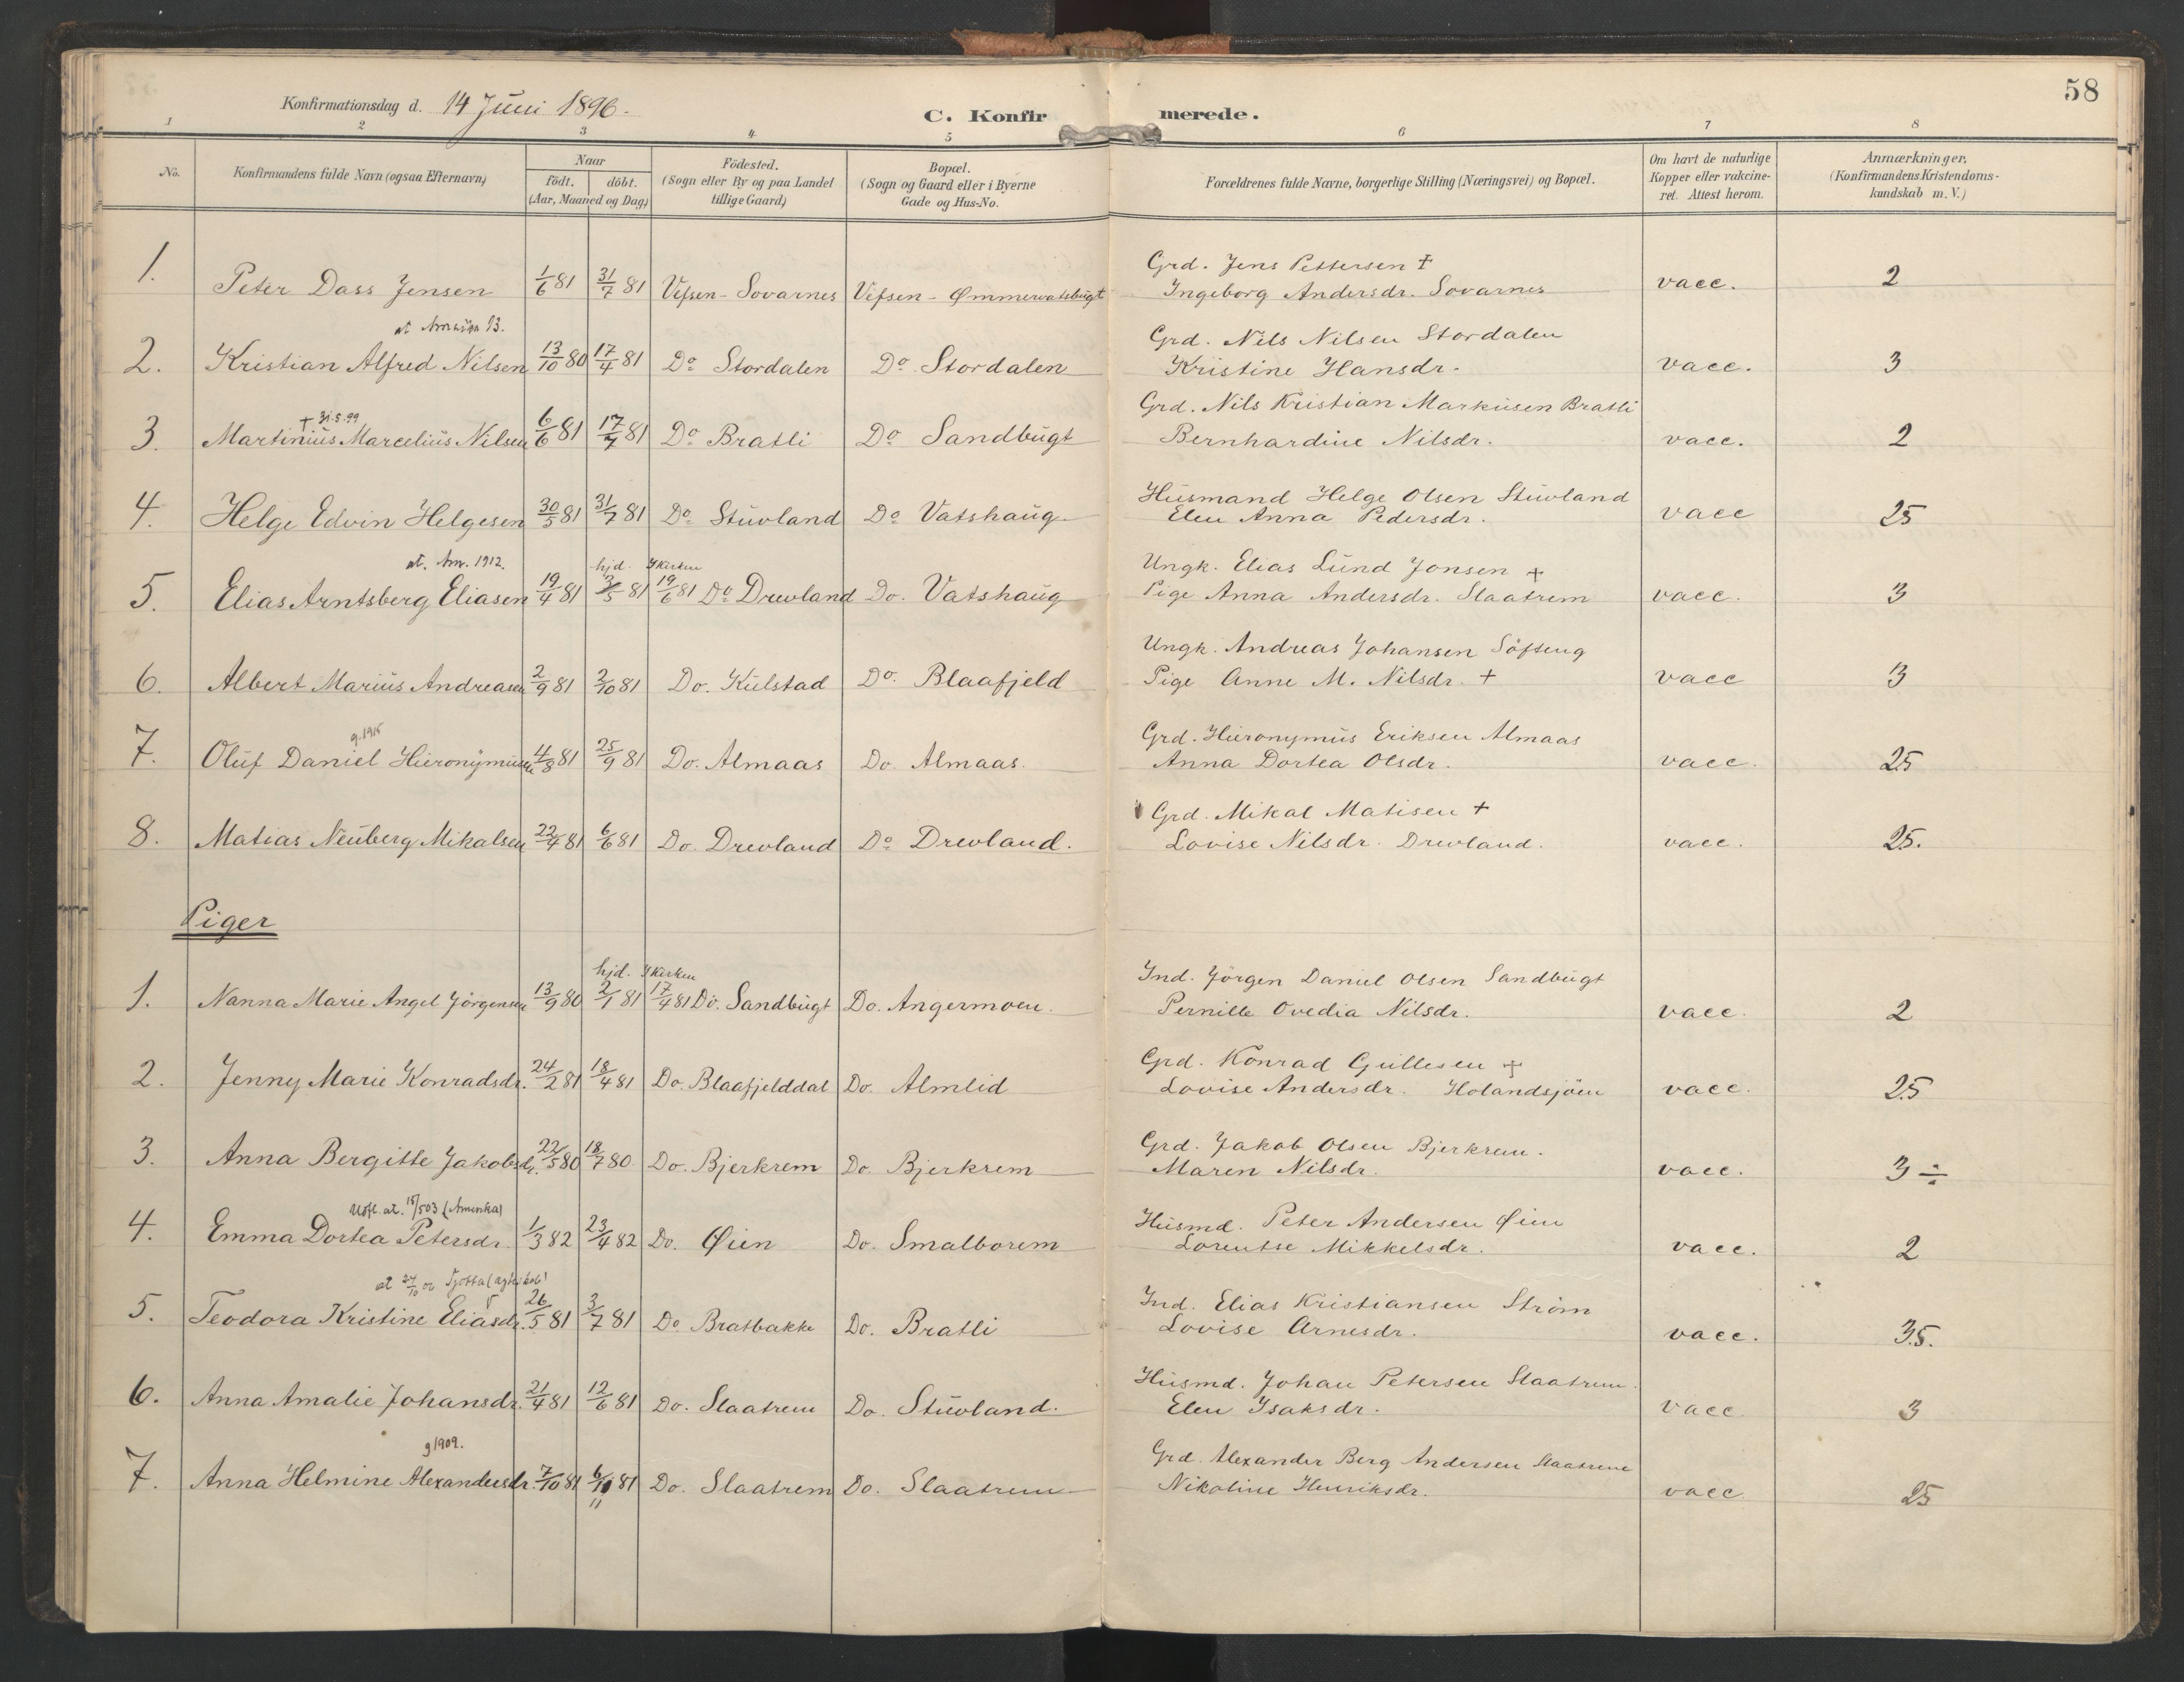 58
Konfirmationsdag d. 14 Juni 1896.
C. Konfir merede.
1 2 3 4 5 6 7 8
No. Konfirmandens fulde Navn (ogsaa Efternavn) Naar födt. döbt. (Aar, Maaned og Dag) Födested. (Sogn eller By og paa Landet tillige Gaard) Bopæl. (Sogn og Gaard eller i Byerne Gade og Hus-No. Forældrenes fulde Navne, borgerlige Stilling (Næringsvei) og Bopæl. Om havt de naturlige Kopper eller vakcineret. Attest herom. Anmærkninger, (Konfirmandens Kristendomskundskab m. V.)
Grd. Jens Pettersen +
1. Peter Dass Jensen 1/6 81 31/7 81 Vefsen - Sovarnes Vefsen - Ømmervatsbugt Ingeborg Andersdr. Sovarnes vacc. 2
Grd. Nils Nilsen Stordalen
2. Kristian Alfred Nilsen 13/10 80 17/4 81 Do Stordalen Do Stordalen Kristine Hansdr. vacc. 3
+ 31.5.99 Grd. Nils Kristian Markusen Bratli
3. Martinius Marcelius Nilsen 6/6 81 17/7 81 Do Bratli Do Sandbugt Bernhardine Nilsdr. vacc. 2
Husmand Helge Olsen Stuvland
4. Helge Edvin Helgesen 30/5 81 31/7 81 Do Stuvland Do Vatshaug Elen Anna Pedersdr. vacc 25
at. Am. 1912. hjd. I Kirken Ungk. Elias Lund Jonsen +
5. Elias Arntsberg Eliasen 19/4 81 3/5 81 19/6 81 Do Drevland Do. Vatshaug Pige Anna Andersdr. Slaatrem vacc. 3
Ungk. Andreas Johansen Söfteng
6. Albert Marius Andreasen 2/9 81 2/10 81 Do. Kulstad Do. Blaafjeld Pige Anne M. Nilsdr. + vacc 3
g. 1915 Grd. Hieronymus Eriksen Almaas
7. Oluf Daniel Hieronymusen 4/8 81 25/9 81 Do. Almaas Do. Almaas. Anna Dortea Olsdr. vacc. 25
Grd. Mikal Matisen +
8. Matias Neuberg Mikalsen 22/4 81 6/6 81 Do. Drevland Do Drevland. Lovise Nilsdr. Drevland. vacc. 25.
Piger
hjd. I Kirken Ind. Jörgen Daniel Olsen Sandbugt
1. Nanna Marie Angel Jörgensen 13/9 80 2/1 81 17/4 81 Do. Sandbugt Do. Angermoen. Pernille Ovedia Nilsdr. vacc. 2
Grd. Konrad Gullesen +
2. Jenny Marie Konradsdr. 24/2 81 18/4 81 Do. Blaafjelddal Do. Almlid Lovise Andersdr. Holandsjöen vacc. 25
Grd. Jakob Olsen Bjerkrem.
3. Anna Bergitte Jakobsdr. 22/5 80 18/7 80 Do. Bjerkrem Do. Bjerkrem Maren Nilsdr. vacc. 3 ÷
Utfl. at. 15/5 03 (Amerika) Husmd. Peter Andersen Øien
4. Emma Dortea Petersdr. 1/3 82 23/4 82 Do. Øien Do. Smalborem Lorentse Mikkelsdr. vacc. 2
Ind. Elias Kristiansen Ström
5. Teodora Kristine Eliasdr. 26/5 81 3/7 81 Do Bratbakke Do. Bratli Lovise Arnesdr. vacc. 3.5.
Husmd. Johan Petersen Slaatrem.
6. Anna Amalie Johansdr. 21/4 81 12/6 81 Do. Slaatrem Do. Stuvland. Elen Isaksdr. vacc 3
g 1909. Grd. Alexander Berg Andersen Slaatrem
7. Anna Helmine Alexandersdr. 7/10 81 6/11 81 Do. Slaatrem Do. Slaatrem Nikoline Henriksdr. vacc 25